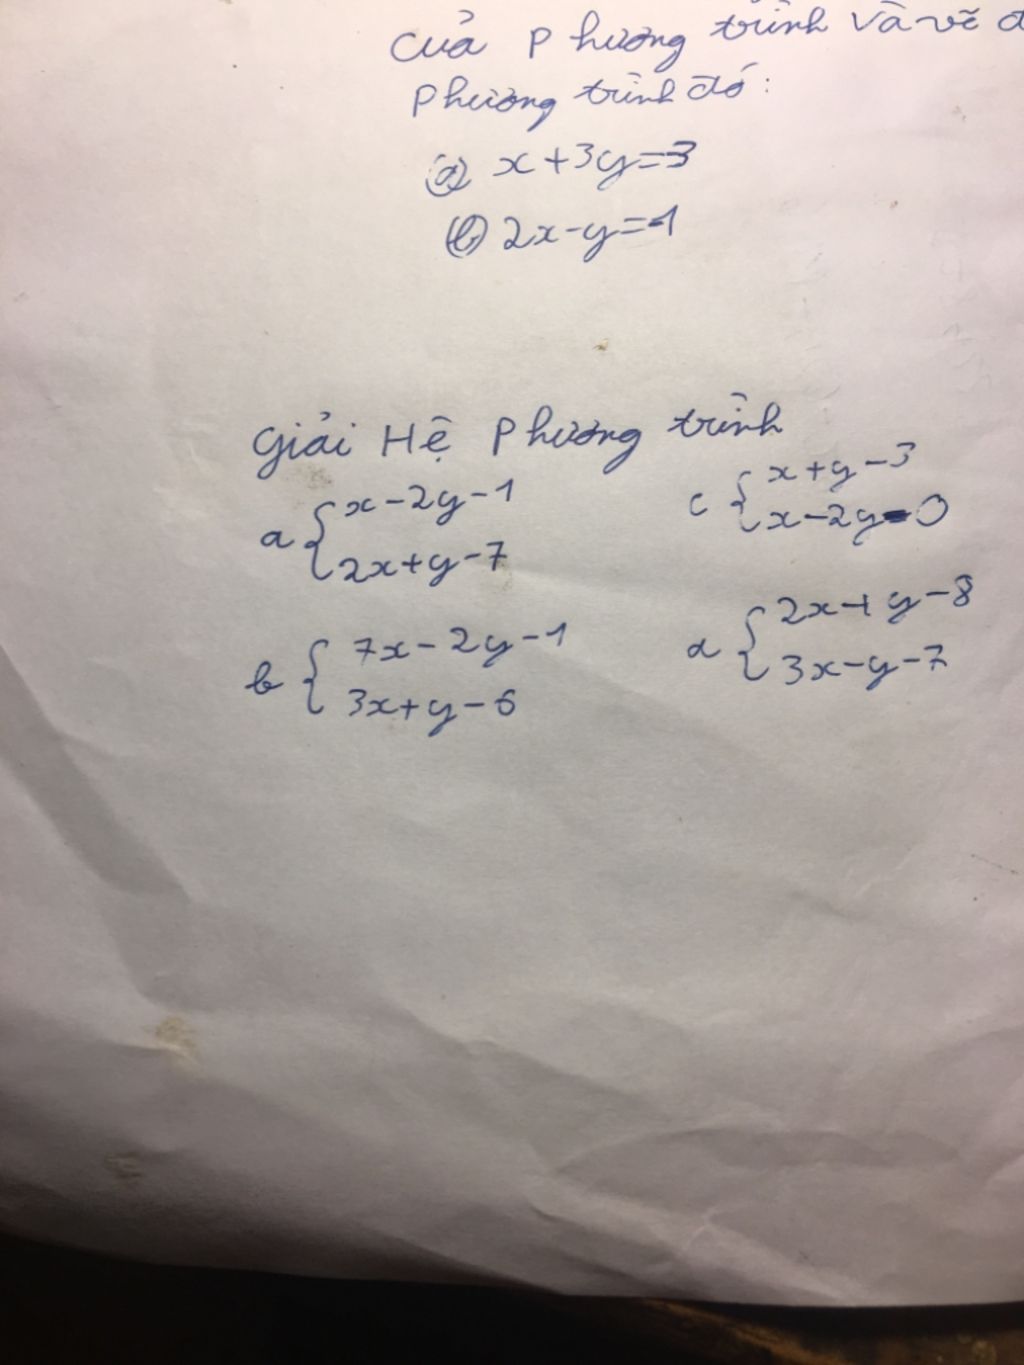 của phương trình và vẽ
phương trình đó:
a) x+3y=3
b) 2x-y=1
Giải Hệ Phương trình
a { x-2y-1
2x+y-7
b { 7x-2y-1
3x+y-6
c { x+y-3
x-2y-0
d { 2x+y-8
3x-y-7